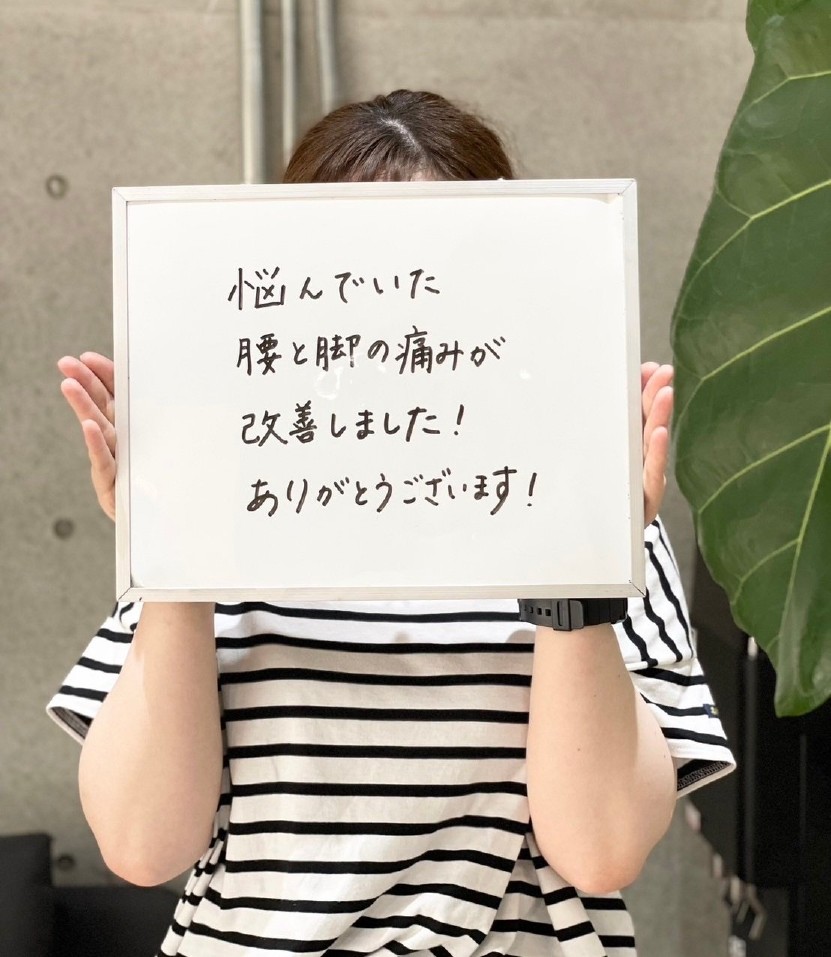 悩んでいた
腰と脚の痛みが
改善しました!
ありがとうございます!